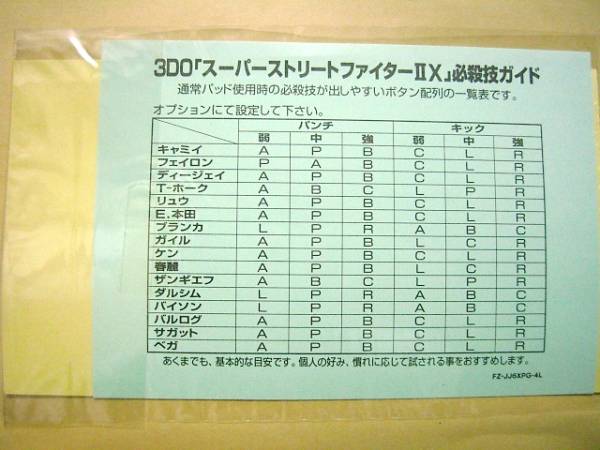 3DO「スーパーストリートファイターⅡX」必殺技ガイド
通常パッド使用時の必殺技が出しやすいボタン配列の一覧表です。
オプションにて設定して下さい。
パンチ キック
弱 中 強 弱 中 強
キャミィ A P B C L R
フェイロン P A B C L R
ディージェイ A P B C L R
T-ホーク A B C L P R
リュウ A P B C L R
E.本田 A P B C L R
ブランカ L P R A B C
ガイル A P B L C R
ケン A P B C L R
春麗 A P B L C R
ザンギエフ A B C L P R
ダルシム L P R A B C
バイソン L P R A B C
バルログ A P B C L R
サガット A P B C L R
ベガ A P B C L R
あくまでも、基本的な目安です。個人の好み、慣れに応じて試される事をおすすめします。
FZ-JJ6XPG-4L